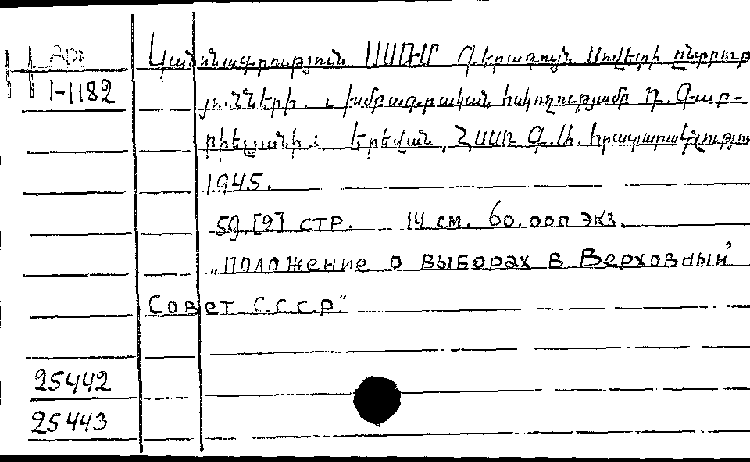 Арм
I-1182
Կանոնագրություն ՍՍՌՄ Գերագույն Սովետի ընտրութ
յունների. խմբագրական հսկողությամբ Գ. Գաբ-
րիելյանի: Երևան, ՀՍՍՌ Գ.Ա. հրատարակչություն
1945.
59 [9] стр. 14 см. 60.000 экз.
„Положение о выборах в Верховный
Совет С.С.С.Р."
25442
25443